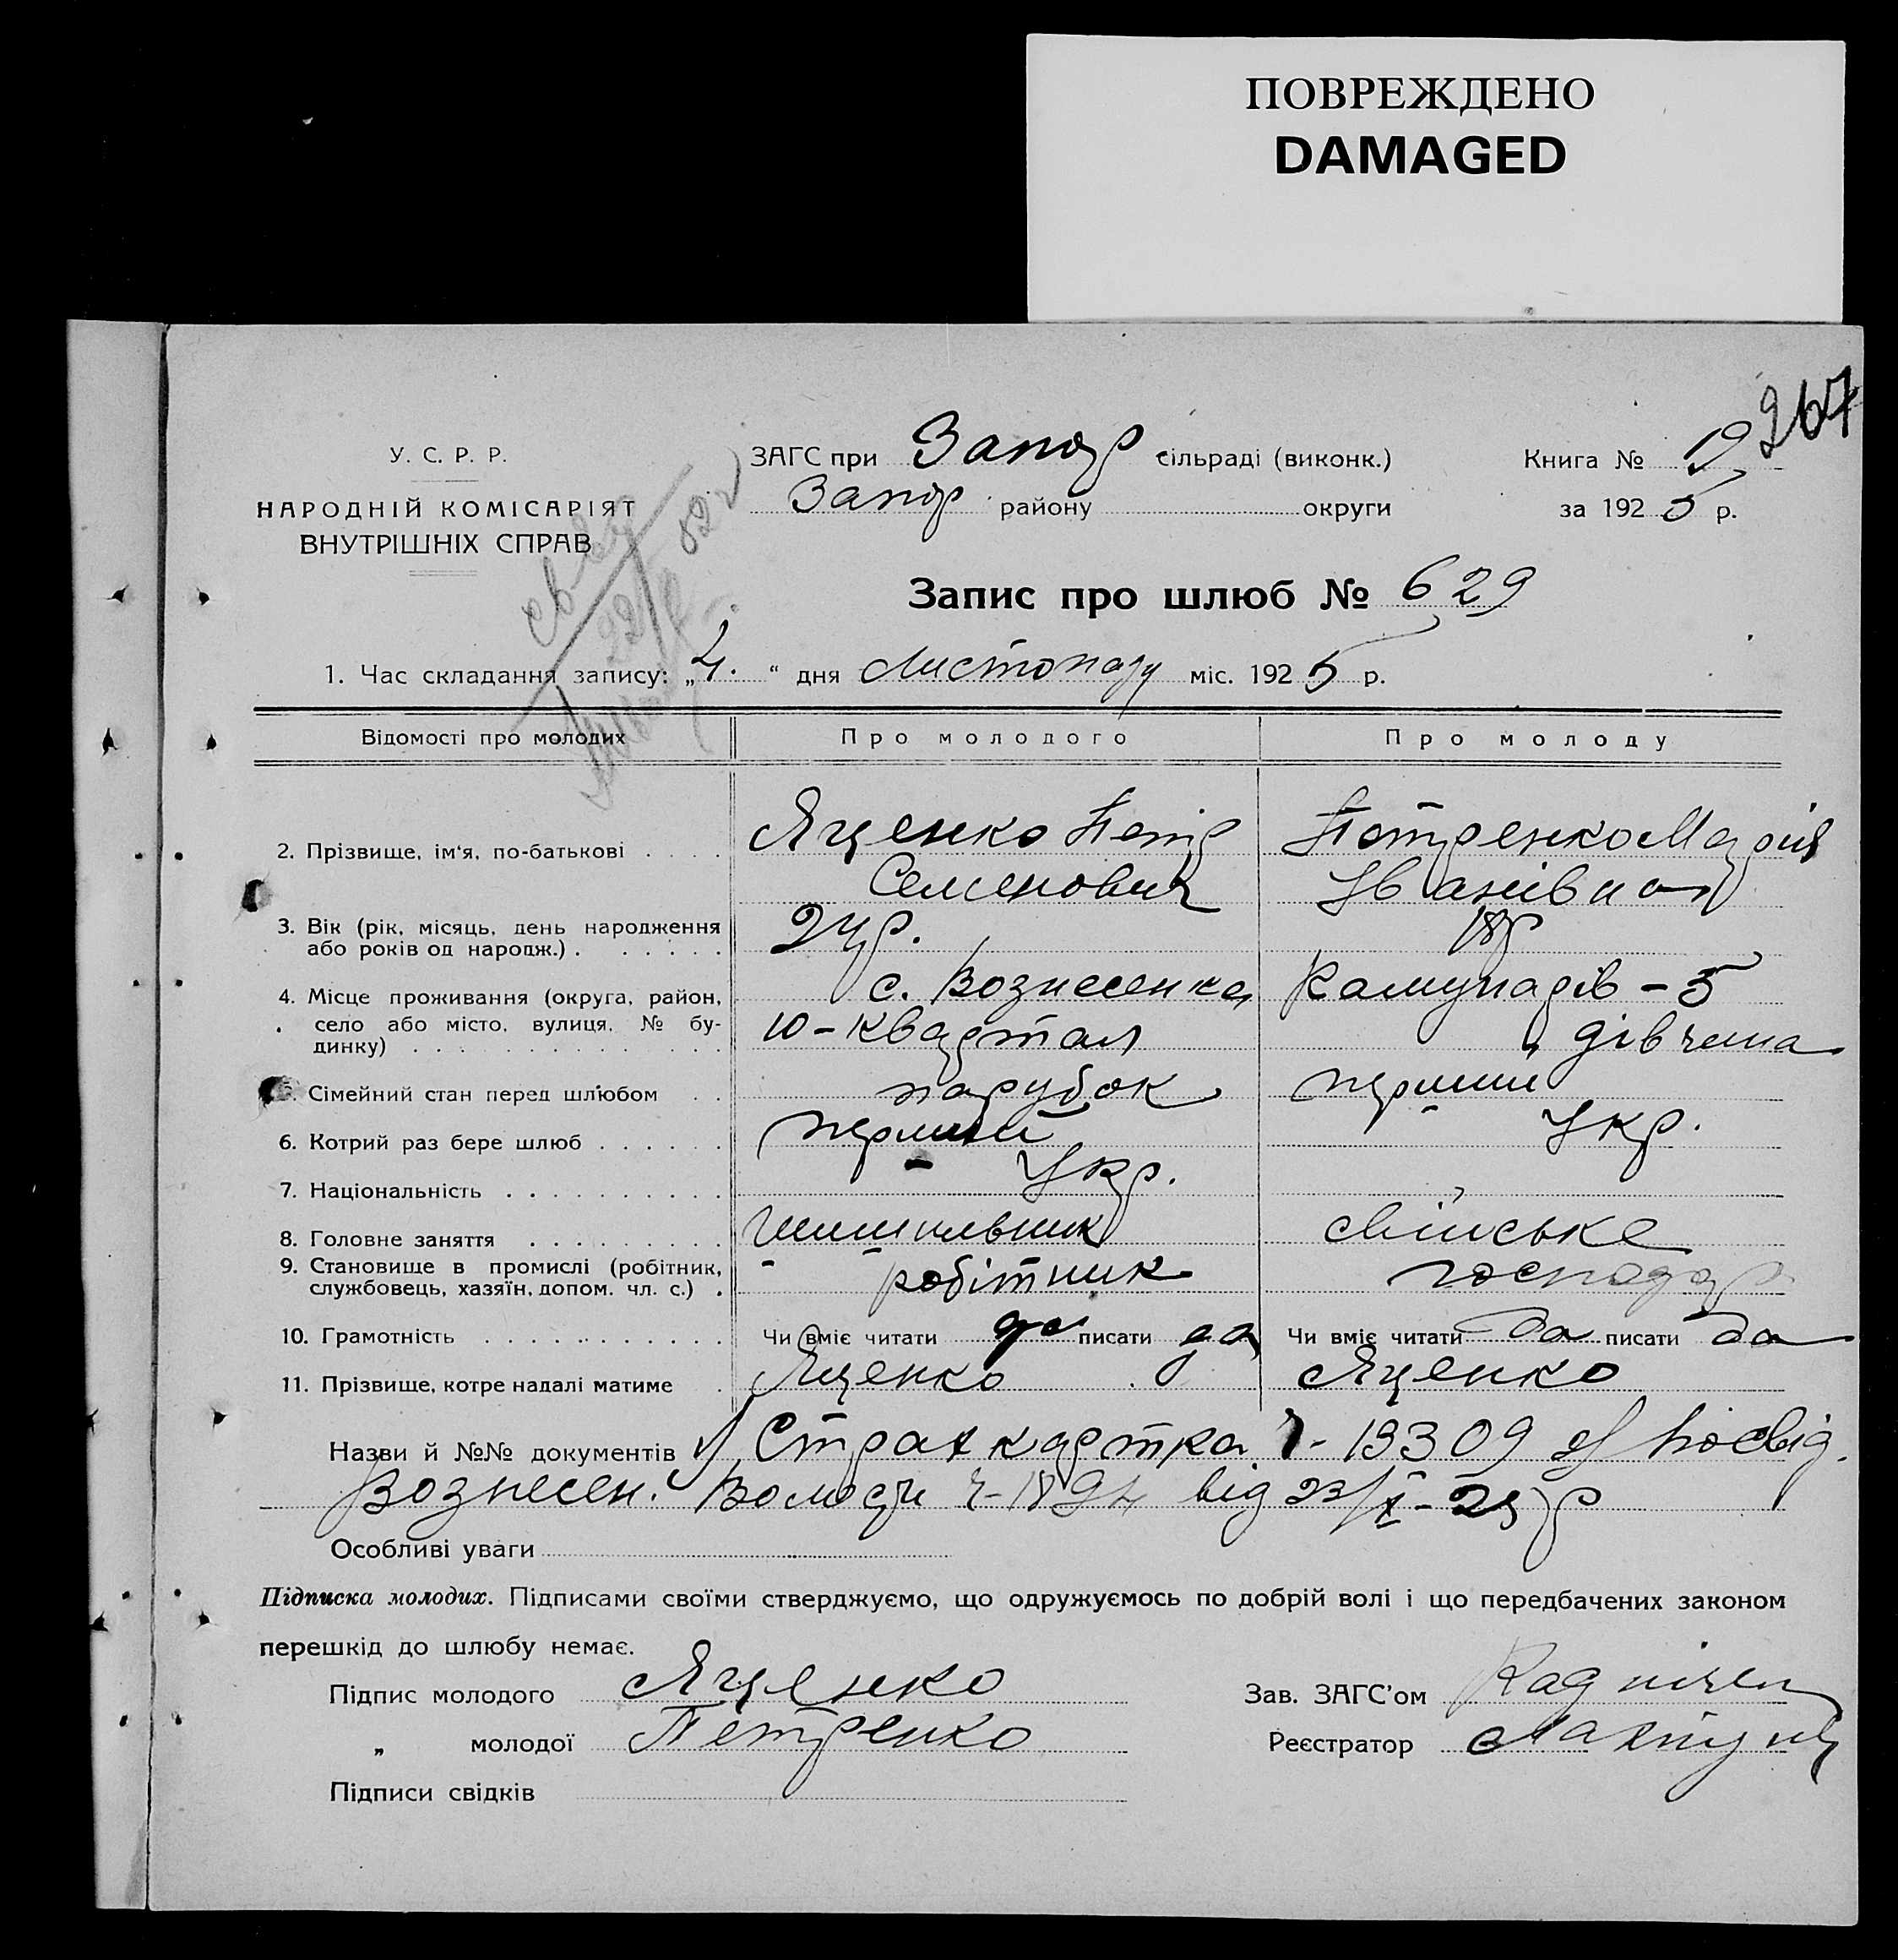 ПОВРЕЖДЕНО
DAMAGED
267
У. С. Р. Р.
НАРОДНІЙ КОМІСАРІЯТ
ВНУТРІШНІХ СПРАВ
ЗАГС при Запор сільраді (виконк.)
Запор району округи
Книга №
за 1925 р.
Запис про шлюб № 629
1. Час складання запису: „4.“ дня Листопаду міс. 1925 р.
Відомості про молодих
Про молодого
Про молоду
2. Прізвище, ім‘я, по-батькові
Яценко Петр
Семенович
Петренко Марія
Іванівна
3. Вік (рік, місяць, день народження
або років од народж.)
24 р.
18 р
4. Місце проживання (округа, район,
село або місто, вулиця, № бу-
динку)
с. Вознесенка
10-квартал
Комунарів - 5
5. Сімейний стан перед шлюбом
парубок
дівчина
6. Котрий раз бере шлюб
перший
перший
7. Національність
Укр.
Укр.
8. Головне заняття
9. Становище в промислі (робітник,
службовець, хазяїн, допом. чл. с.)
робітник
сільське
господар
10. Грамотність
Чи вміє читати да писати да
Чи вміє читати да писати да
11. Прізвище, котре надалі матиме
Яценко
Яценко
Назви й №№ документів 1/ Страх картка ч- 19309 2/ Посвід.
Вознесен. ч-1894 від 23/X-25 р
Особливі уваги
Підписка молодих. Підписами своїми стверджуємо, що одружуємось по добрій волі і що передбачених законом
перешкід до шлюбу немає.
Підпис молодого Яценко
„ молодої Петренко
Підписи свідків
Зав. ЗАГС’ом
Реєстратор